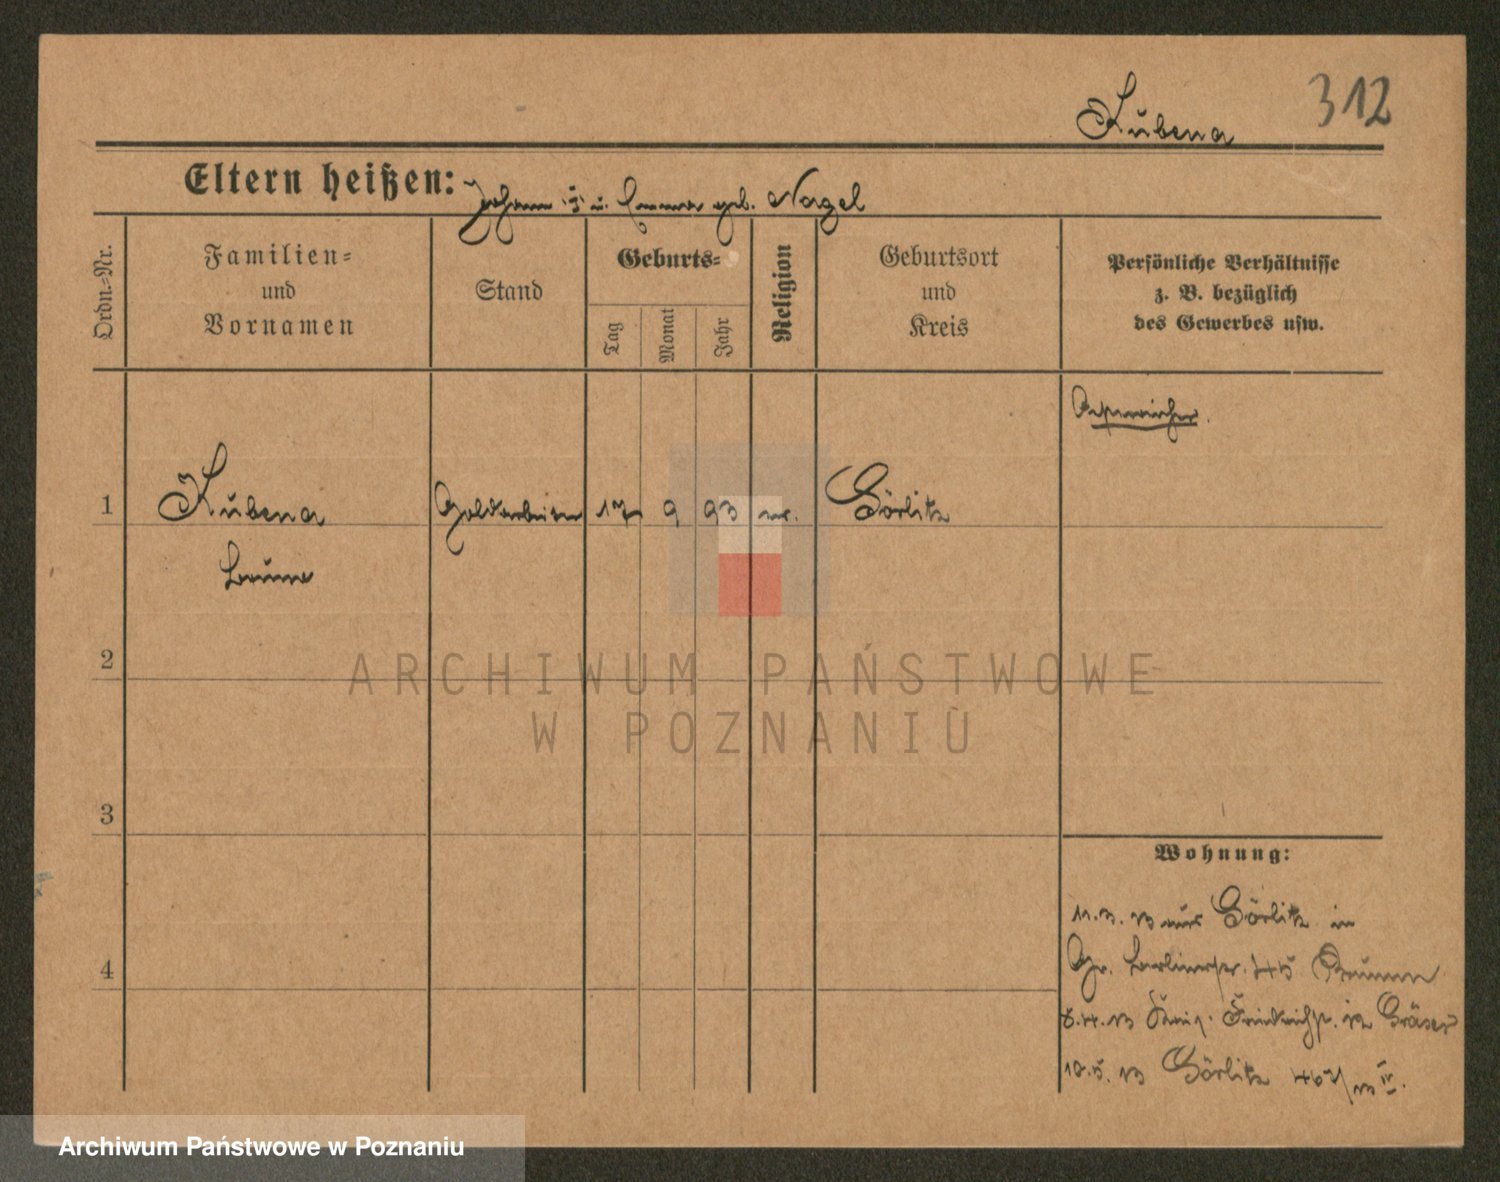 Kubena 312
Eltern heißen: Johann u. Emma geb. Nagel
Ordn.=Nr.
Familien=
und
Vornamen
Stand
Geburts=
Tag
Monat
Jahr
Religion
Geburtsort
und
Kreis
Persönliche Verhältnisse
z. B. bezüglich
des Gewerbes usw.
Österreicher.
1 Kubena Goldarbeiter 17 9 93 Görlitz
Bruno
2
3
4
Wohnung:
11.3.13 aus Görlitz in
Gr. Berlinerstr.
8.4.13 Gräser
18.5.13 Görlitz
ARCHIWUM PAŃSTWOWE
W POZNANIU
Archiwum Państwowe w Poznaniu